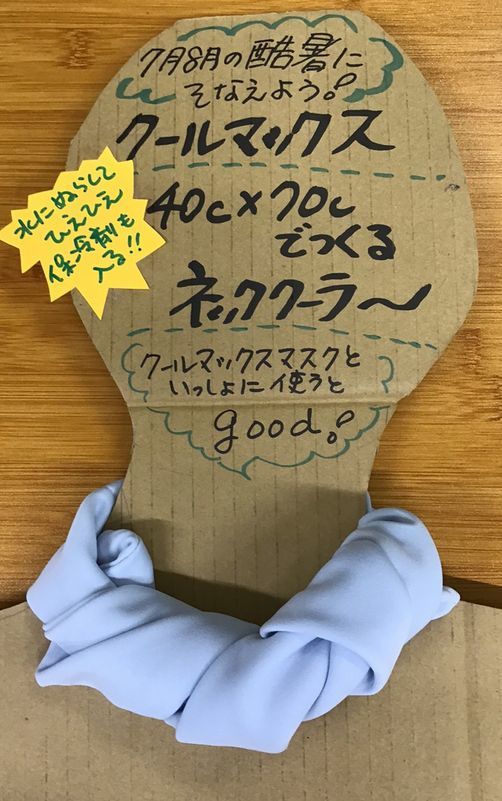 7月8月の酷暑に
そなえよう!
クールマックス
水にぬらして
ひえひえ
保冷剤も
入る!!
40c×70c
でつくる
ネッククーラ〜
クールマックスマスクと
いっしょに使うと
good!